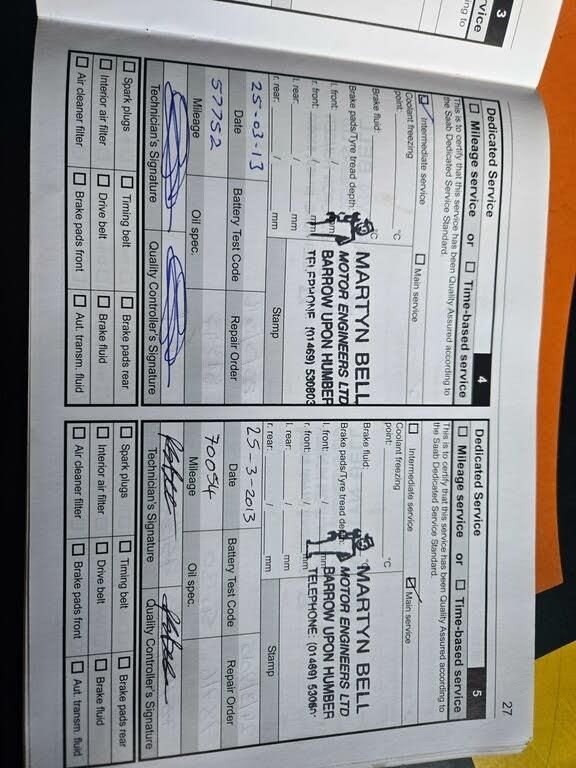 3
vice
ng to
27
Dedicated Service 4
This is to certify that this service has been Quality Assured according to
the Saab Dedicated Service Standard.
Mileage service or Time-based service
Intermediate service Main service
Coolant freezing
point: °C
Brake fluid: °C
Brake pads/Tyre tread depth:
l. front: / mm
r. front: / mm
l. rear: / mm
r. rear: / mm
MARTYN BELL
MOTOR ENGINEERS LTD
BARROW UPON HUMBER
TELEPHONE (01469) 530803
Stamp
25-03-13
Date Battery Test Code Repair Order
57752
Mileage Oil spec.
Technician's Signature Quality Controller's Signature
Spark plugs Timing belt Brake pads rear
Interior air filter Drive belt Brake fluid
Air cleaner filter Brake pads front Aut. transm. fluid
Dedicated Service 5
This is to certify that this service has been Quality Assured according to
the Saab Dedicated Service Standard.
Mileage service or Time-based service
Intermediate service Main service
Coolant freezing
point: °C
Brake fluid:
Brake pads/Tyre tread depth:
l. front: / mm
r. front: / mm
l. rear: / mm
r. rear: / mm
MARTYN BELL
MOTOR ENGINEERS LTD
BARROW UPON HUMBER
TELEPHONE: (01469)
Stamp
25-3-2013
Date Battery Test Code Repair Order
70054
Mileage Oil spec.
Technician's Signature Quality Controller's Signature
Spark plugs Timing belt Brake pads rear
Interior air filter Drive belt Brake fluid
Air cleaner filter Brake pads front Aut. transm. fluid